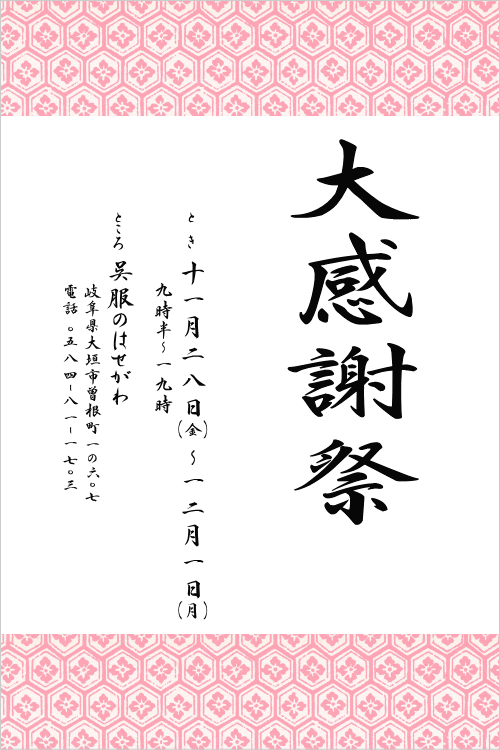 大感謝祭
とき 十一月二八日(金)～一二月一日(月)
九時半～一九時
ところ 呉服のはせがわ
岐阜県大垣市曽根町一の六〇七
電話 〇五八四ー八一ー一七〇三